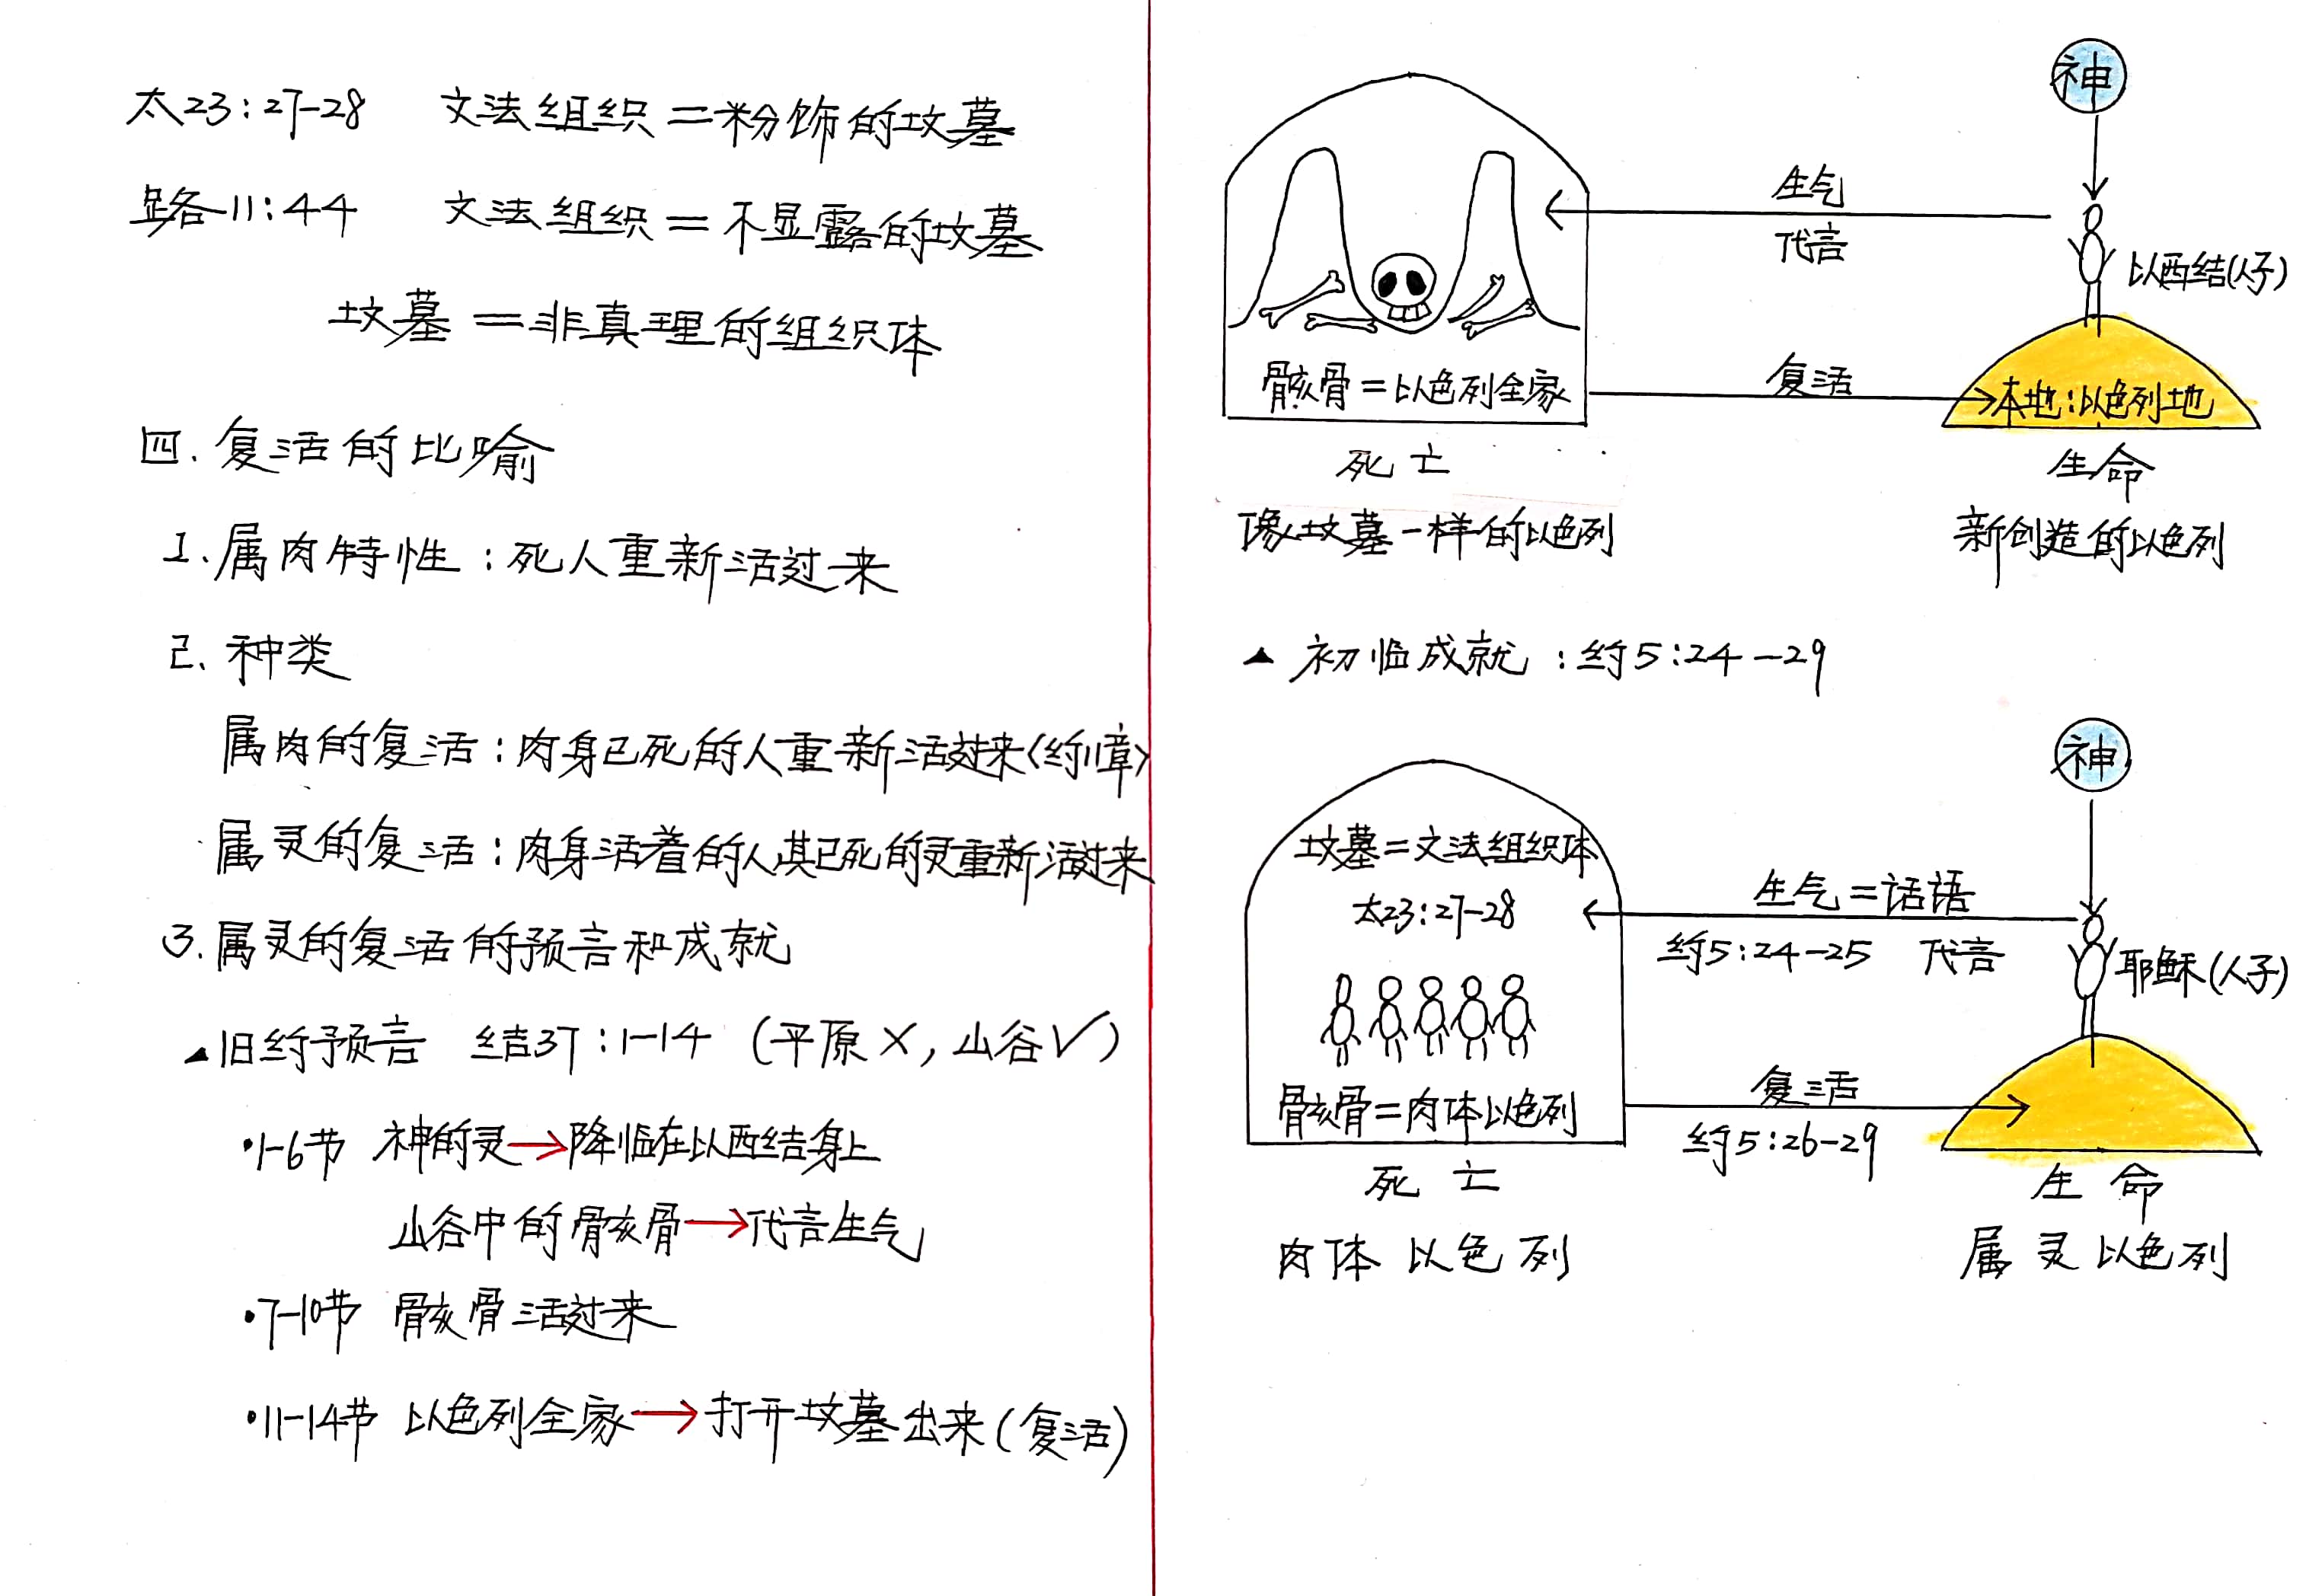 太23:27-28 文法组织=粉饰的坟墓
路11:44 文法组织=不显露的坟墓
坟墓=非真理的组织体
四.复活的比喻
1.属肉特性:死人重新活过来
2.种类
属肉的复活:肉身已死的人重新活过来<约11章>
属灵的复活:肉身活着的人其已死的灵重新活过来
3.属灵的复活的预言和成就
▲旧约预言 结37:1-14 (平原×,山谷✓)
•1-6节 神的灵→降临在以西结身上
山谷中的骨亥骨→代言生气
•7-10节 骨亥骨活过来
•11-14节 以色列全家→打开坟墓出来(复活)
神
生气
代言
以西结(人子)
骸骨=以色列全家
复活
本地:以色列地
死亡
生命
像坟墓一样的以色列
新创造的以色列
▲ 初临成就:约5:24-29
神
坟墓=文法组织体
太23:27-28
生气=话语
约5:24-25 代言
耶稣(人子)
骸骨=肉体以色列
复活
约5:26-29
死亡
生命
肉体以色列
属灵以色列